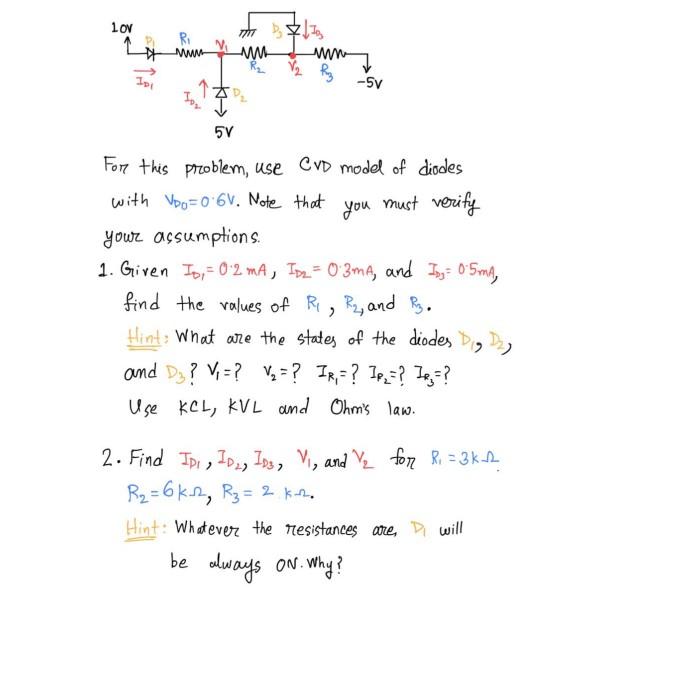 10V D₁ R₁ V₁ D₃ I_D₃
R₂ V₂ R₃ -5V
I_D₁ I_D₂ D₂
5V
For this problem, use CVD model of diodes
with V_D0=0.6V. Note that you must verify
your assumptions.
1. Given I_D₁=0.2 mA, I_D2=0.3mA, and I_D₃=0.5mA,
find the values of R₁, R₂, and R₃.
Hint: What are the states of the diodes D₁, D₂,
and D₃? V₁=? V₂=? I_R₁=? I_R₂=? I_R₃=?
Use KCL, KVL and Ohm's law.
2. Find I_D1, I_D2, I_D3, V₁, and V₂ for R₁=3kΩ
R₂=6kΩ, R₃=2 kΩ.
Hint: Whatever the resistances are, D₁ will
be always ON. Why?